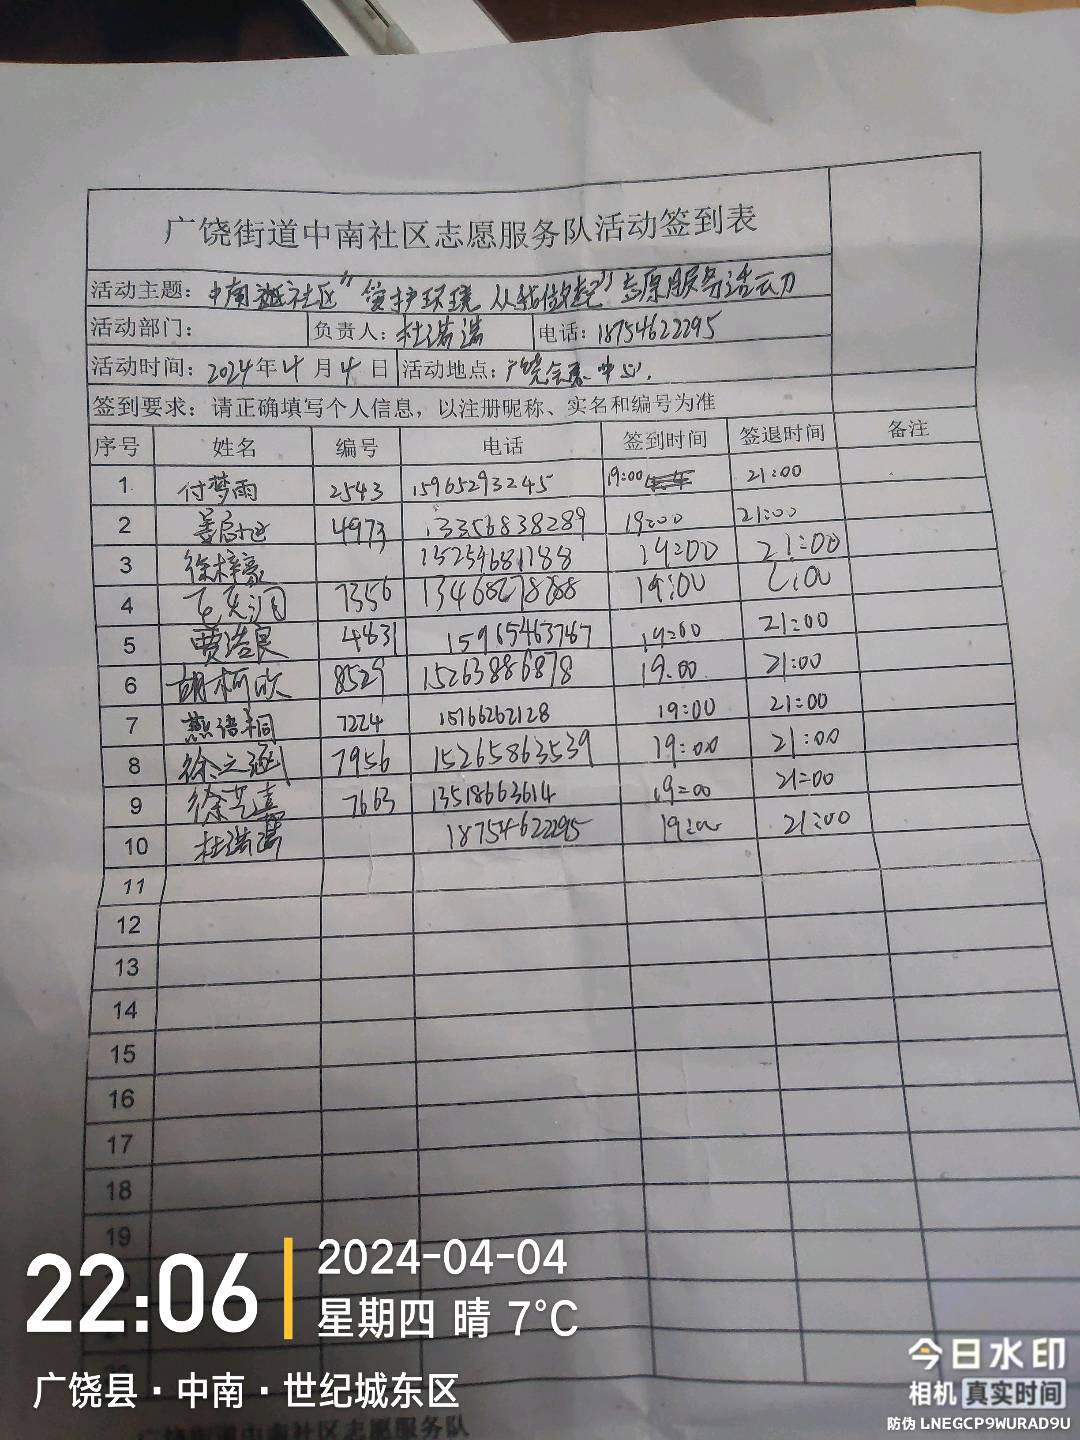 广饶街道中南社区志愿服务队活动签到表
活动主题: 中南社区"爱护环境 从我做起"志愿服务活动
活动部门: 负责人: 杜 电话: 18754622295
活动时间: 2024年4月4日 活动地点: 广饶 中心.
签到要求: 请正确填写个人信息，以注册昵称、实名和编号为准
序号 姓名 编号 电话 签到时间 签退时间 备注
1 付梦雨 2543 15965293245 19:00 21:00
2 4973 13356838289 19:00 21:00
3 徐梓豪 15254681188 19:00 21:00
4 7356 19:00
5 贾浩良 4831 15965463787 19:00 21:00
6 胡柯欣 8529 15263886878 19:00 21:00
7 燕语桐 7224 15166262128 19:00 21:00
8 徐之涵 7956 15265863539 19:00 21:00
9 徐艺嘉 7663 13518663614 19:00 21:00
10 杜 18754622295 19:00 21:00
11
12
13
14
15
16
17
18
19
22:06
2024-04-04
星期四 晴 7°C
广饶县·中南·世纪城东区
今日水印
相机 真实时间
防伪 LNEGCP9WURAD9U
广饶街道中南社区志愿服务队